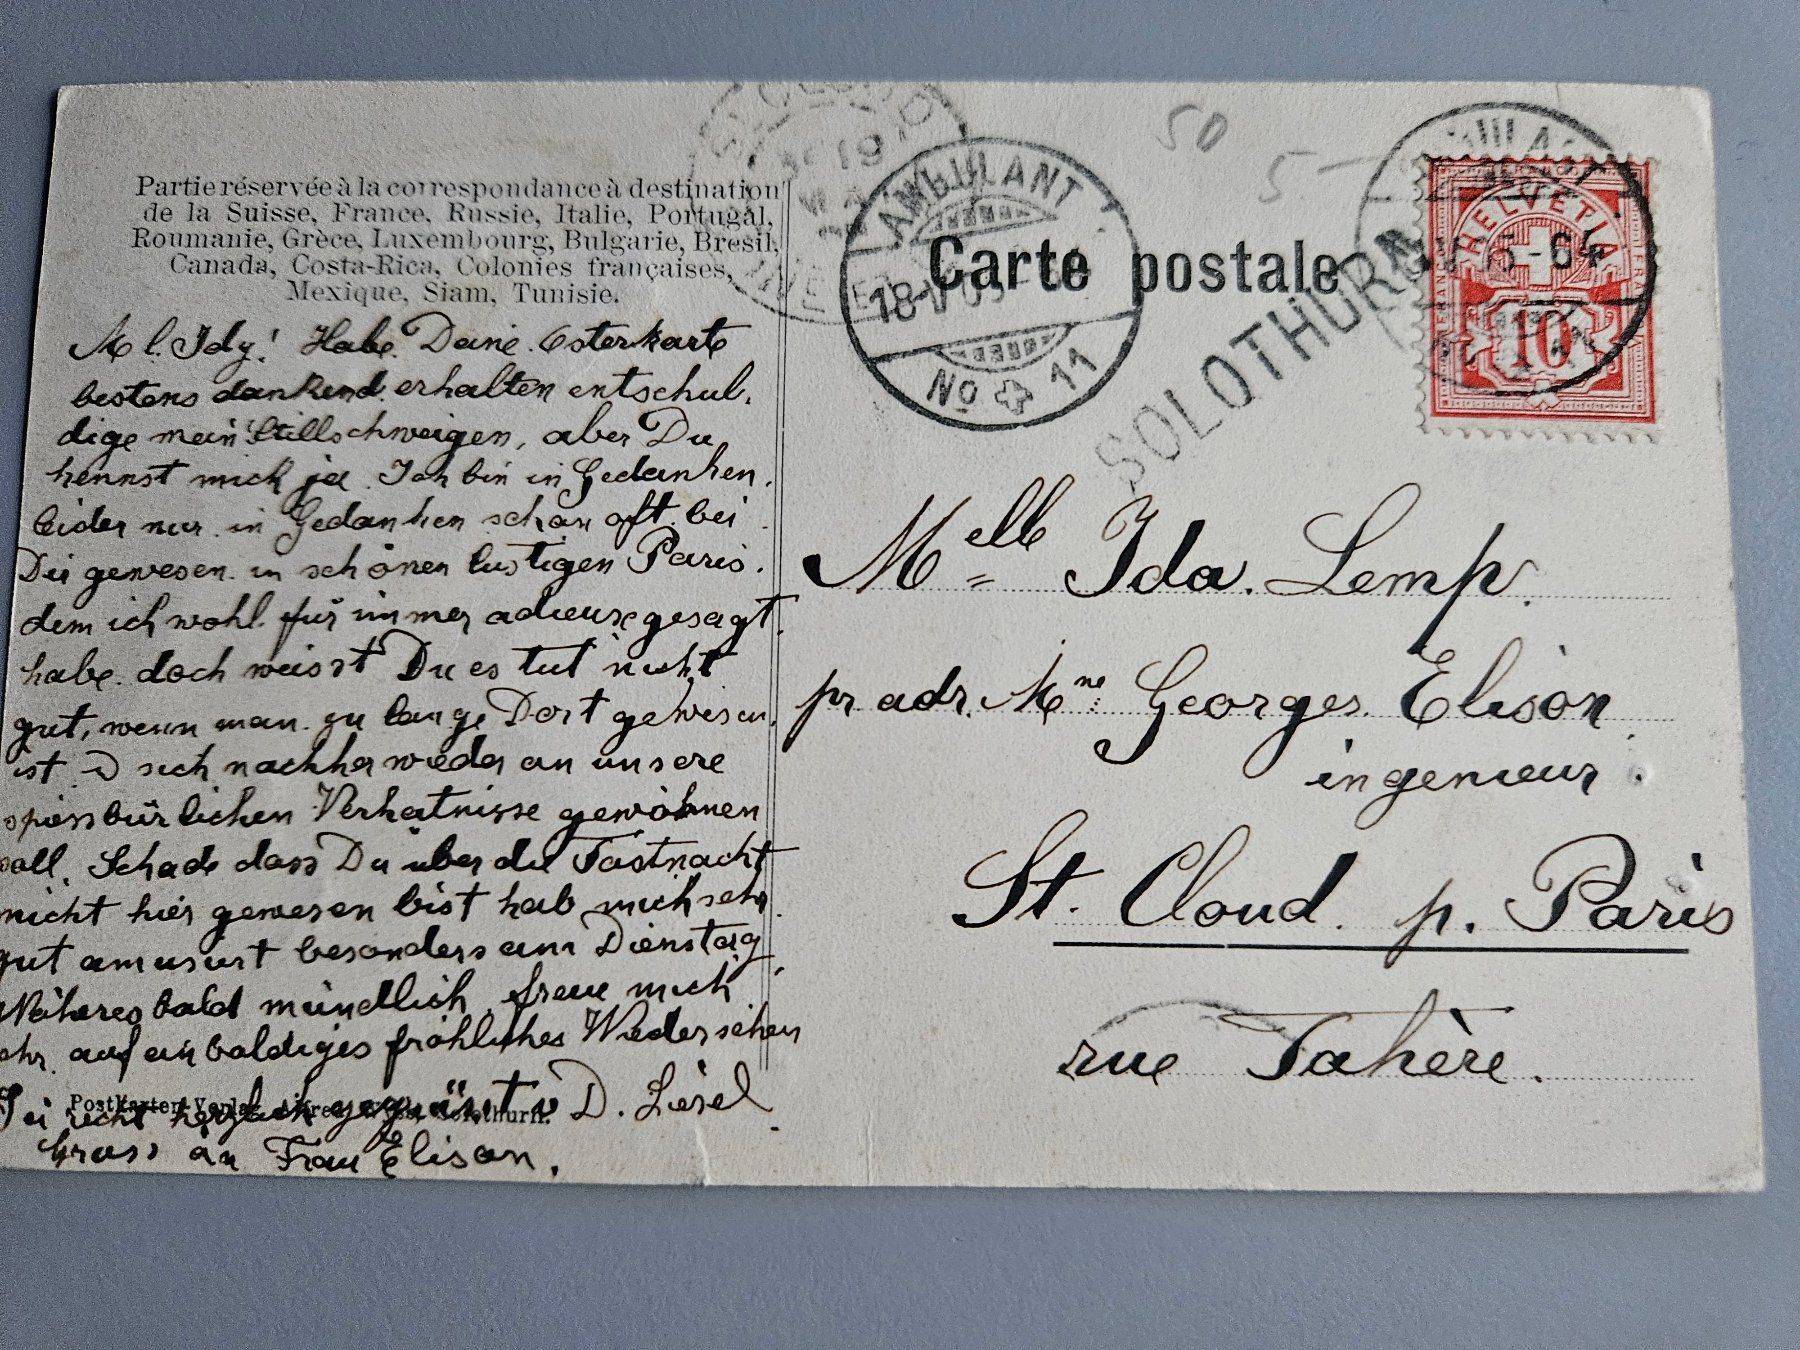 Partie réservée à la correspondance à destination
de la Suisse, France, Russie, Italie, Portugal,
Roumanie, Grèce, Luxembourg, Bulgarie, Bresil,
Canada, Costa-Rica, Colonies françaises,
Mexique, Siam, Tunisie.
M l. Idy! Habe Deine Osterkarte
bestens dankend erhalten entschul,
dige mein Stillschweigen, aber Du
kennst mich ja. Ich bin in Gedanken,
leider nur in Gedanken schon oft bei
Dir gewesen in schönen lustigen Paris.
dem ich wohl für immer adieux gesagt
habe. doch weisst Du es tut nicht
gut, wenn man zu lange Dort gewesen,
ist sich nachher wieder an unsere
spiessbürlichen Verhältnisse gewöhnen
soll. Schade dass Du über die Fastnacht
nicht hier gewesen bist hab mich sehr
gut amusiert besonders am Dienstag,
Näheres bald mündlich, freue mich
sehr auf ein baldiges fröhliches Wiedersehen
Sei recht herzlich gegrüsst v D. Liesel
Gruss an Frau Elison.
Postkarten-Verlag Solothurn.
AMBULANT
18-V 05
No 11
50
5-
Carte postale
SOLOTHURN
AMBULANT
HELVETIA
10
Melle Ida Lemp.
pr adr. Mme Georges Elison
ingenieur.
St. Cloud p. Paris
rue Tahère.